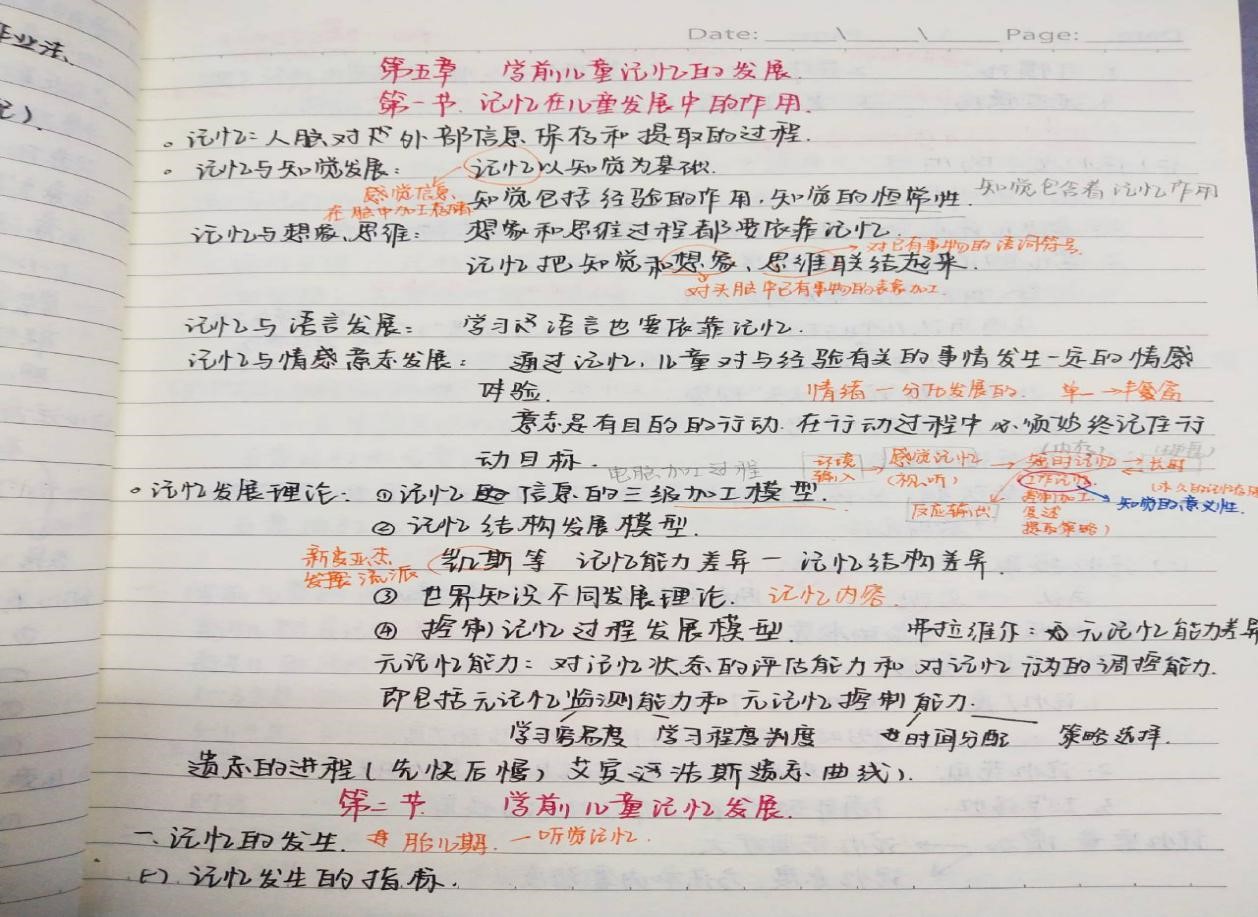 Date: ____\____\____ Page: ____
毕业法.
记).
第五章 学前儿童记忆的发展.
第一节. 记忆在儿童发展中的作用.
。记忆: 人脑对外部信息保存和提取的过程.
。记忆与知觉发展: 记忆以知觉为基础.
感觉信息、
在脑中加工存储
知觉包括经验的作用, 知觉的恒常性. 知觉包含着记忆作用
记忆与想象、思维: 想象和思维过程都要依靠记忆.
对已有事物的语词符号
记忆把知觉和想象、思维联结起来.
对头脑中已有事物的表象加工
记忆与语言发展: 学习语言也要依靠记忆.
记忆与情感意志发展: 通过记忆, 儿童对与经验有关的事情发生一定的情感
体验. 情绪一分化发展的. 单一→丰富
意志是有目的的行动. 在行动过程中必须始终记住行
动目标. 电脑加工过程
环境输入 → 感觉记忆(视、听) → 短时记忆(内存) 长时(硬盘)
(永久的记忆存储
反应输出 (工作记忆 控制加工 复述 提取策略) 知觉的意义性.
。记忆发展理论: ①记忆信息的三级加工模型.
②记忆结构发展模型.
新皮亚杰
发展流派
凯斯等 记忆能力差异一记忆结构差异.
③世界知识不同发展理论. 记忆内容.
④控制记忆过程发展模型. 弗拉维尔: 元记忆能力差异
元记忆能力: 对记忆状态的评估能力和对记忆行为的调控能力.
即包括元记忆监测能力和元记忆控制能力.
学习容易度 学习程度判度 时间分配 策略选择.
遗忘的进程(先快后慢) 艾宾浩斯遗忘曲线).
第二节. 学前儿童记忆发展.
一.记忆的发生. 胎儿期. 一听觉记忆.
(一).记忆发生的指标.